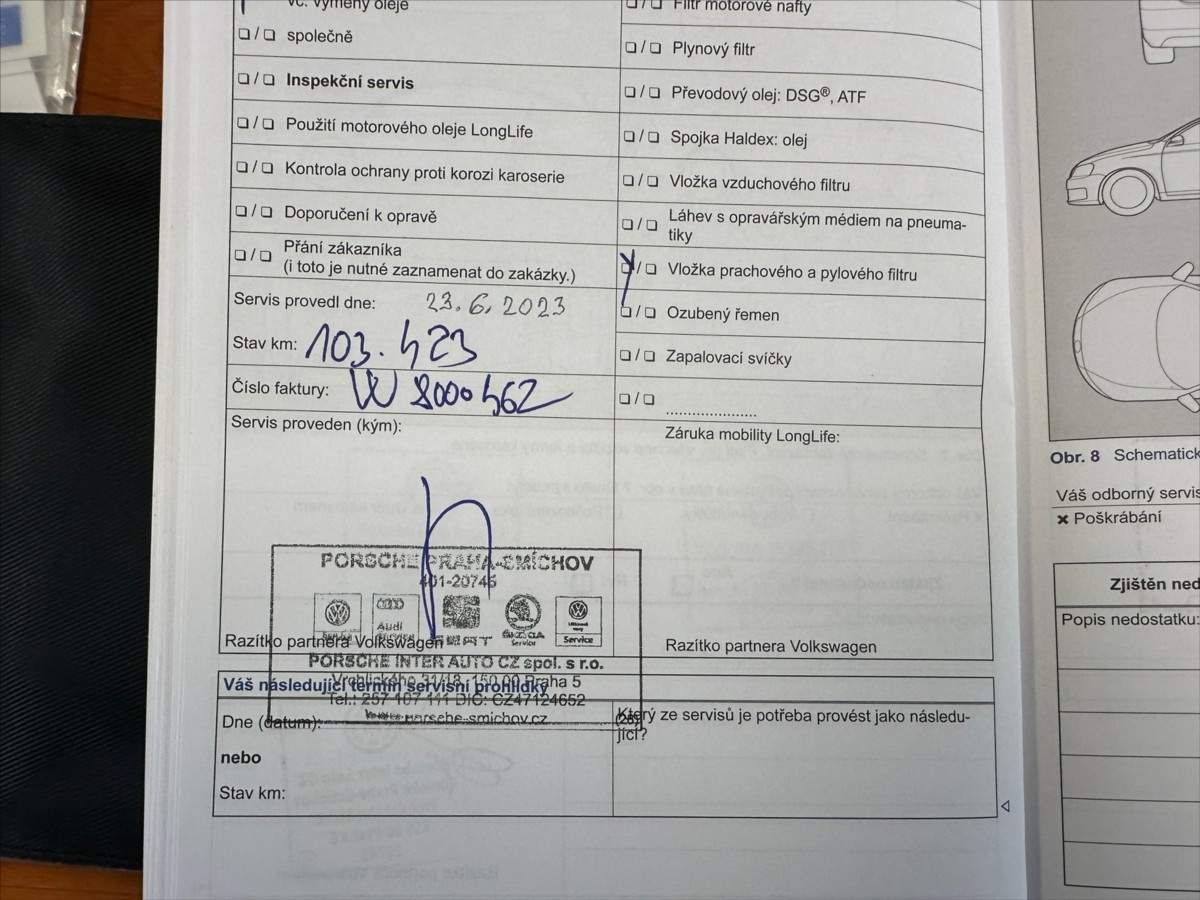 vč. výměny oleje
❏ / ❏ společně
❏ / ❏ Inspekční servis
❏ / ❏ Použití motorového oleje LongLife
❏ / ❏ Kontrola ochrany proti korozi karoserie
❏ / ❏ Doporučení k opravě
❏ / ❏ Přání zákazníka
(i toto je nutné zaznamenat do zakázky.)
Servis provedl dne: 23.6.2023
Stav km: 103.423
Číslo faktury:
Servis proveden (kým):
PORSCHE PRAHA-SMÍCHOV
401-20746
Audi
Service
SEAT
ŠKODA
Service
Service
Razítko partnera Volkswagen
PORSCHE INTER AUTO CZ spol. s r.o.
Vrchlického 31/18, 150 00 Praha 5
Tel.: 257 107 111 DIČ: CZ47124652
www.porsche-smichov.cz
(26)
Váš následující termín servisní prohlídky
Dne (datum):
nebo
Stav km:
❏ / ❏ Filtr motorové nafty
❏ / ❏ Plynový filtr
❏ / ❏ Převodový olej: DSG®, ATF
❏ / ❏ Spojka Haldex: olej
❏ / ❏ Vložka vzduchového filtru
❏ / ❏ Láhev s opravářským médiem na pneuma-
tiky
❏ / ❏ Vložka prachového a pylového filtru
❏ / ❏ Ozubený řemen
❏ / ❏ Zapalovací svíčky
❏ / ❏ .....................
Záruka mobility LongLife:
Razítko partnera Volkswagen
Který ze servisů je potřeba provést jako následu-
jící?
Obr. 8 Schematick
Váš odborný servis
✖ Poškrábání
Zjištěn ned
Popis nedostatku: